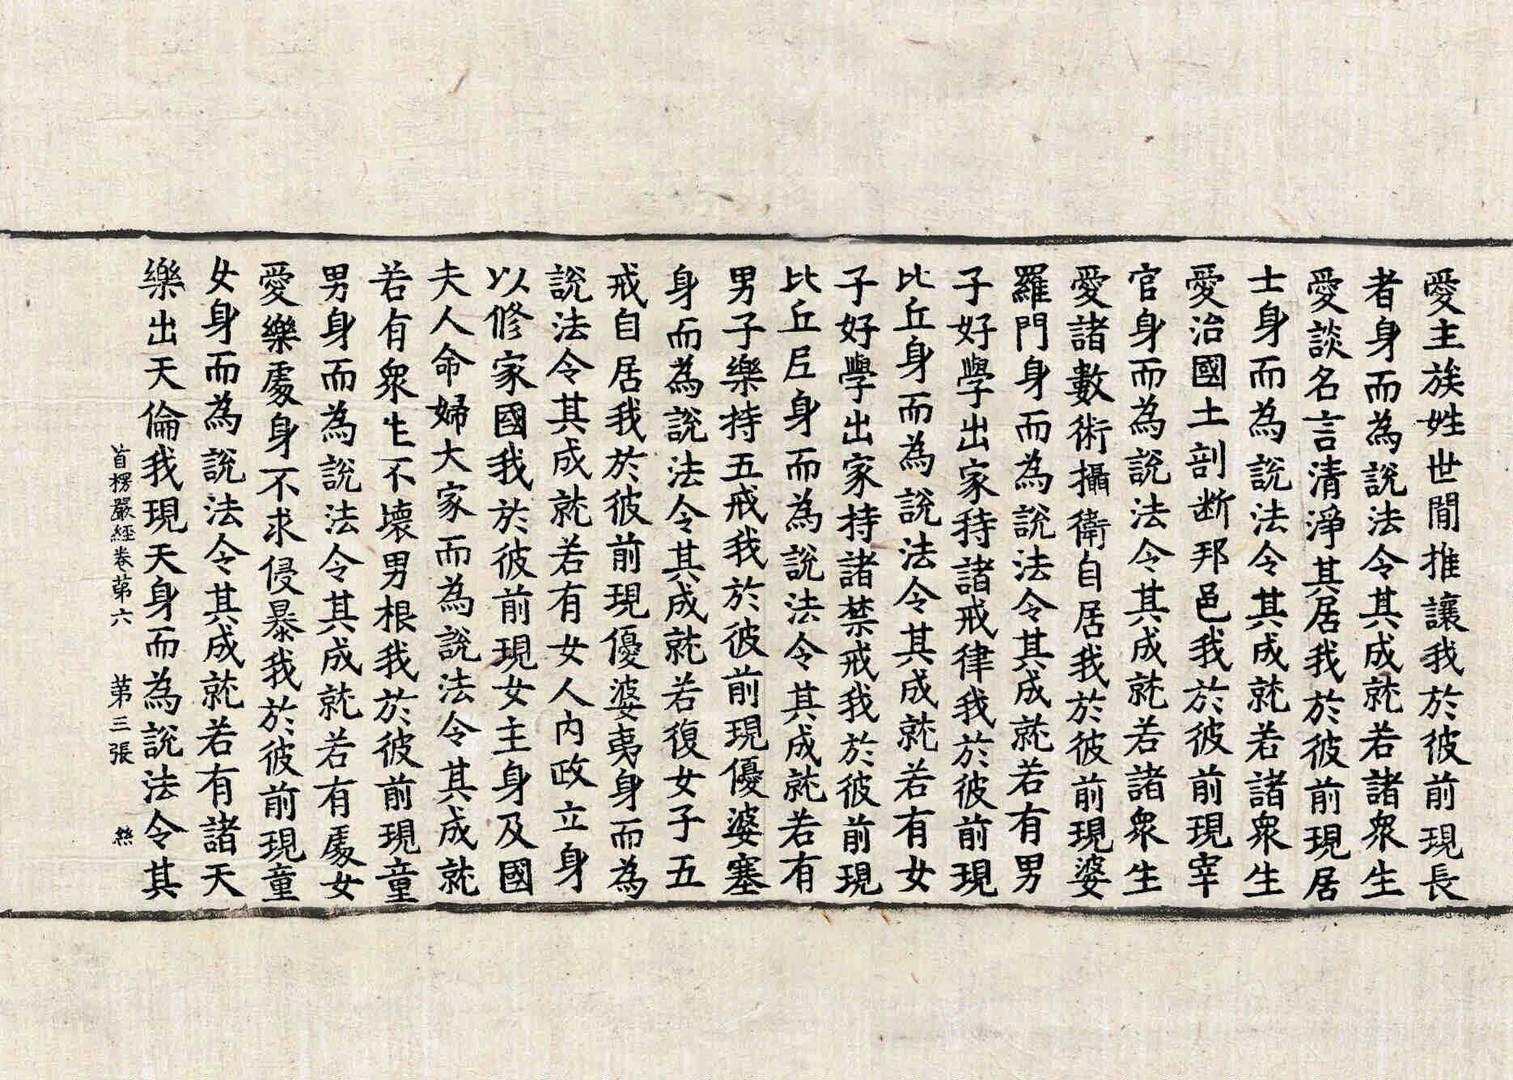 愛主族姓世間推讓我於彼前現長
者身而為說法令其成就若諸衆生
愛談名言清淨其居我於彼前現居
士身而為說法令其成就若諸衆生
愛治國土剖断邦邑我於彼前現宰
官身而為說法令其成就若諸衆生
愛諸數術攝衛自居我於彼前現婆
羅門身而為說法令其成就若有男
子好學出家持諸戒律我於彼前現
比丘身而為說法令其成就若有女
子好學出家持諸禁戒我於彼前現
比丘尼身而為說法令其成就若有
男子樂持五戒我於彼前現優婆塞
身而為說法令其成就若復女子五
戒自居我於彼前現優婆夷身而為
說法令其成就若有女人內政立身
以修家國我於彼前現女主身及國
夫人命婦大家而為說法令其成就
若有衆生不壞男根我於彼前現童
男身而為說法令其成就若有處女
愛樂處身不求侵暴我於彼前現童
女身而為說法令其成就若有諸天
樂出天倫我現天身而為說法令其
首楞嚴經卷苐六 苐三張 絲